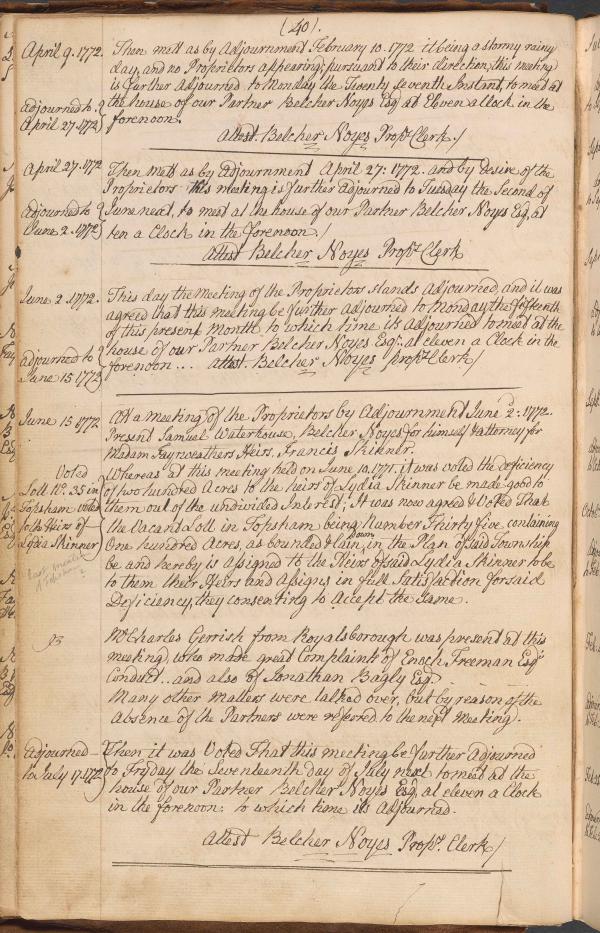 (40).
April 9. 1772. Then mett as by Adjournment February 10. 1772 it being a stormy rainy
day, and no Proprietors appearing, pursuant to their direction, this meeting
is further Adjourned to Monday the Twenty Seventh Instant, to meet at
Adjourned to the house of our Partner Belcher Noyes Esq at Eleven a Clock in the
April 27. 1772 forenoon.
Attest. Belcher Noyes Propr. Clerk /
April 27. 1772 Then Mett as by Adjournment April 27: 1772. and by desire of the
Proprietors this meeting is further Adjourned to Tuesday the Second of
Adjourned to June next, to meet at the house of our Partner Belcher Noyes Esq. at
June 2. 1772 ten a Clock in the forenoon /
Attest Belcher Noyes Propr. Clerk
June 2. 1772. This day the Meeting of the Proprietors stands Adjourned, and it was
agreed that this meeting be further Adjourned to Monday the fifteenth
of this present Month to which time its Adjourned to meet at the
Adjourned to house of our Partner Belcher Noyes Esqr. at eleven a Clock in the
June 15 1772 forenoon... Attest. Belcher Noyes propr. Clerk /
June 15 1772 Att a meeting of the Proprietors by Adjournment June 2: 1772.
Present Samuel Waterhouse, Belcher Noyes for himself & Attorney for
Madam Fayrweathers Heirs, Francis Skinner.
Voted Whereas at this meeting held on June 10. 1771. it was voted the deficiency
Lott No. 35 in of two hundred Acres to the heirs of Lydia Skinner be made good to
Topsham voted them out of the undivided Interest; It was now agreed & Voted That
to the Heirs of the Vacant Lott in Topsham being Number Thirty five, containing
Lydia Skinner One hundred Acres, as bounded & laid down in the Plan of said Township
be and hereby is assigned to the Heirs of said Lydia Skinner to be
to them their Heirs and Assigns in full Satisfaction for said
Deficiency, they consenting to Accept the same.
Mr Charles Gerrish from Royalsborough was present at this
meeting, who made great Complaint of Enoch Freeman Esqr
Conduct.. and also of Jonathan Bagly Esq.
Many other matters were talked over, but by reason of the
Absence of the Partners were referred to the next Meeting).
Adjourned Then it was Voted That this meeting be further Adjourned
to July 17. 1772 to Fryday the Seventeenth day of July next to meet at the
house of our Partner Belcher Noyes Esq. at eleven a Clock
in the forenoon: to which time its Adjourned.
Attest Belcher Noyes Propr. Clerk /